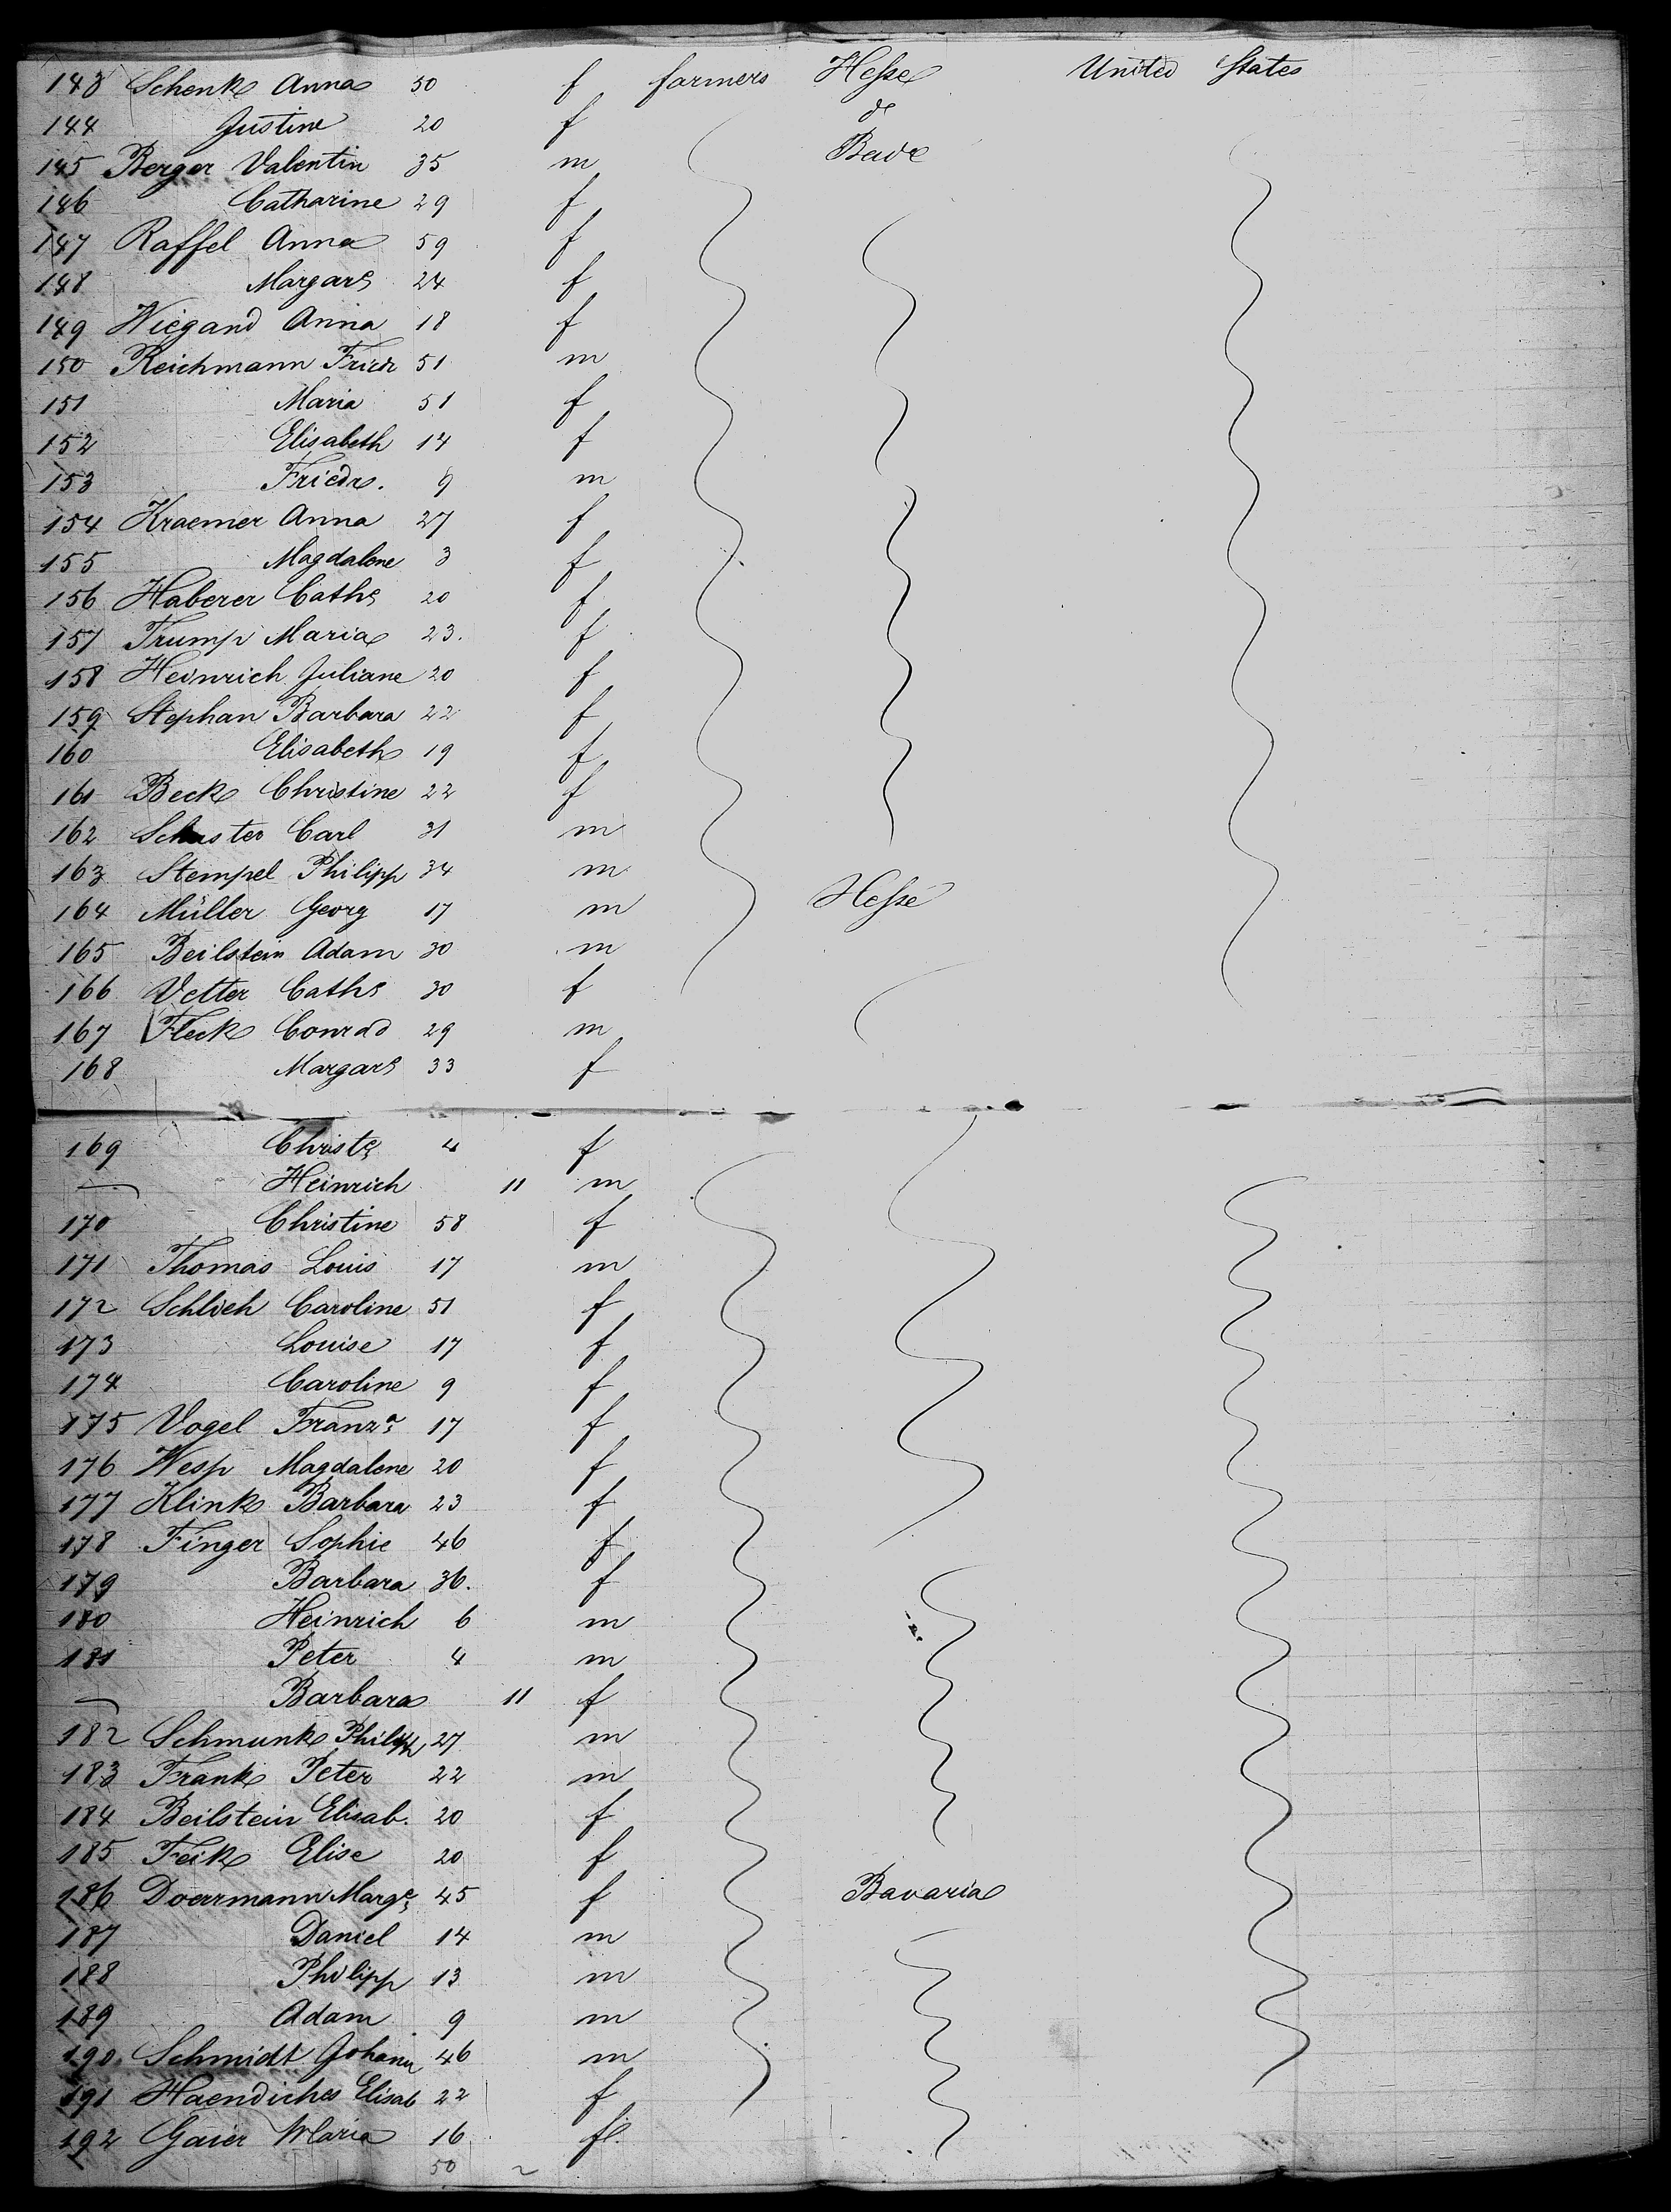 143 Schenk Anna 50 f farmers Hesse United States
144 Justine 20 f do
145 Berger Valentin 35 m Bade
146 Catharine 29 f
147 Raffel Anna 59 f
148 Margar 24 f
149 Wiegand Anna 18 f
150 Reichmann Friedr 51 m
151 Maria 51 f
152 Elisabeth 14 f
153 Friedr. 9 m
154 Kraemer Anna 27 f
155 Magdalene 3 f
156 Haberer Cath 20 f
157 Trump Maria 23. f
158 Heinrich Juliane 20 f
159 Stephan Barbara 22 f
160 Elisabeth 19 f
161 Beck Christine 22 f
162 Schuster Carl 31 m
163 Stempel Philipp 34 m
164 Müller Georg 17 m Hesse
165 Beilstein Adam 30 m
166 Vetter Cath 30 f
167 Fleck Conrad 29 m
168 Margar 33 f
169 Christe 4 f
— Heinrich 11 m
170 Christine 58 f
171 Thomas Louis 17 m
172 Schlich Caroline 51 f
173 Louise 17 f
174 Caroline 9 f
175 Vogel Franza 17 f
176 Wesp Magdalene 20 f
177 Klink Barbara 23 f
178 Finger Sophie 46 f
179 Barbara 36. f
180 Heinrich 6 m
181 Peter 4 m
— Barbara 11 f
182 Schmunk Philipp 27 m
183 Frank Peter 22 m
184 Beilstein Elisab. 20 f
185 Feik Elise 20 f
186 Doerrmann Marge 45 f Bavaria
187 Daniel 14 m
188 Philipp 13 m
189 Adam 9 m
190 Schmidt Johann 46 m
191 Haendiches Elisab 22 f
192 Gaier Maria 16 f.
50